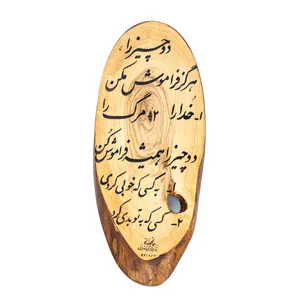 دو چیز را
هرگز فراموش مکن
۱- خدا را ۲- مرگ را
دو چیز را همیشه فراموش کن
۱- به کسی که خوبی کردی
۲- کسی که به تو بدی کرد